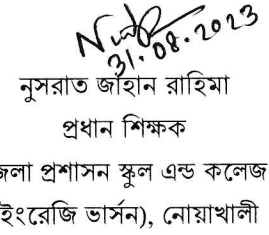 31.08.2023
নুসরাত জাহান রাহিমা
প্রধান শিক্ষক
জেলা প্রশাসন স্কুল এন্ড কলেজ
(ইংরেজি ভার্সন), নোয়াখালী